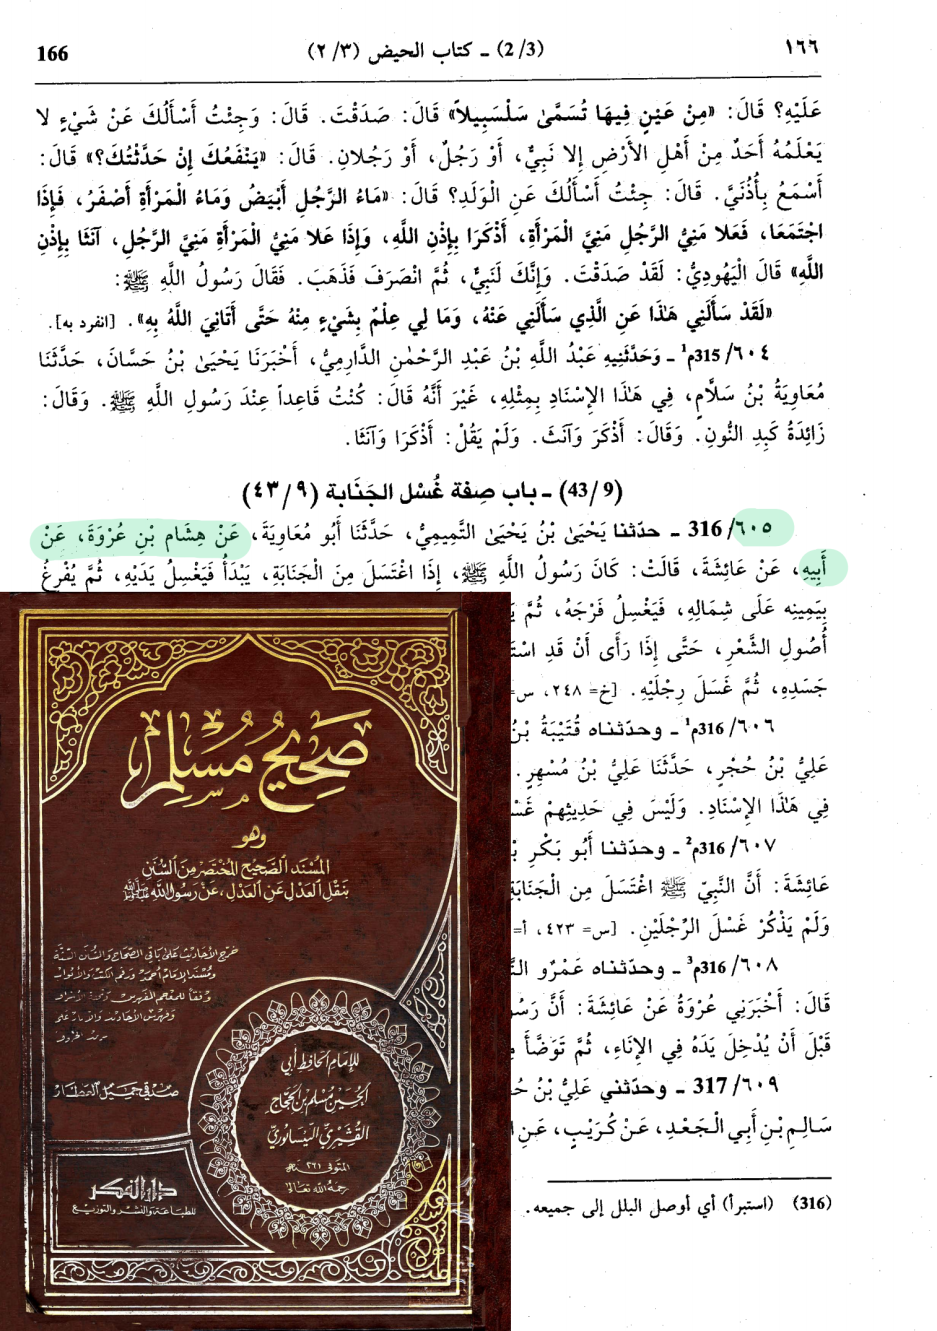 ١٦٦ (2/3) ـ كتاب الحيض (٢/٣) 166
عَلَيْهِ؟ قَالَ: «مِنْ عَيْنٍ فِيهَا تُسَمَّىٰ سَلْسَبِيلاً» قَالَ: صَدَقْتَ. قَالَ: وَجِئْتُ أَسْأَلُكَ عَنْ شَيْءٍ لا
يَعْلَمُهُ أَحَدٌ مِنْ أَهْلِ الأَرْضِ إِلا نَبِيٌّ، أَوْ رَجُلٌ، أَوْ رَجُلانِ. قَالَ: «يَنْفَعُكَ إِنْ حَدَّثْتُكَ؟» قَالَ:
أَسْمَعُ بِأُذُنَيَّ. قَالَ: جِئْتُ أَسْأَلُكَ عَنِ الْوَلَدِ؟ قَالَ: «مَاءُ الرَّجُلِ أَبْيَضُ وَمَاءُ الْمَرْأَةِ أَصْفَرُ، فَإِذَا
اجْتَمَعَا، فَعَلا مَنِيُّ الرَّجُلِ مَنِيَّ الْمَرْأَةِ، أَذْكَرَا بِإِذْنِ اللَّهِ، وَإِذَا عَلا مَنِيُّ الْمَرْأَةِ مَنِيَّ الرَّجُلِ، آنَثَا بِإِذْنِ
اللَّهِ» قَالَ الْيَهُودِيُّ: لَقَدْ صَدَقْتَ. وَإِنَّكَ لَنَبِيٌّ، ثُمَّ انْصَرَفَ فَذَهَبَ. فَقَالَ رَسُولُ اللَّهِ ﷺ:
«لَقَدْ سَأَلَنِي هَٰذَا عَنِ الَّذِي سَأَلَنِي عَنْهُ، وَمَا لِي عِلْمٌ بِشَيْءٍ مِنْهُ حَتَّى أَتَانِيَ اللَّهُ بِهِ». [انفرد به].
٦٠٤/315م¹ ـ وَحَدَّثَنِيهِ عَبْدُ اللَّهِ بْنُ عَبْدِ الرَّحْمٰنِ الدَّارِمِيُّ، أَخْبَرَنَا يَحْيَىٰ بْنُ حَسَّانَ، حَدَّثَنَا
مُعَاوِيَةُ بْنُ سَلَّامٍ، فِي هَٰذَا الإِسْنَادِ بِمِثْلِهِ، غَيْرَ أَنَّهُ قَالَ: كُنْتُ قَاعِداً عِنْدَ رَسُولِ اللَّهِ ﷺ. وَقَالَ:
زَائِدَةُ كَبِدِ النُّونِ. وَقَالَ: أَذْكَرَ وَآنَثَ. وَلَمْ يَقُلْ: أَذْكَرَا وَآنَثَا.
(43/9) ـ باب صِفة غُسْل الجَنَابة (٤٣/٩)
٦٠٥/316 ـ حدّثنا يَحْيَىٰ بْنُ يَحْيَىٰ التَّمِيمِيُّ، حَدَّثَنَا أَبُو مُعَاوِيَةَ، عَنْ هِشَامِ بْنِ عُرْوَةَ، عَنْ
أَبِيهِ، عَنْ عَائِشَةَ، قَالَتْ: كَانَ رَسُولُ اللَّهِ ﷺ، إِذَا اغْتَسَلَ مِنَ الْجَنَابَةِ، يَبْدَأُ فَيَغْسِلُ يَدَيْهِ، ثُمَّ يُفْرِغُ
بِيَمِينِهِ عَلَى شِمَالِهِ، فَيَغْسِلُ فَرْجَهُ، ثُمَّ
أُصُولِ الشَّعْرِ، حَتَّى إِذَا رَأَى أَنْ قَدِ
جَسَدِهِ، ثُمَّ غَسَلَ رِجْلَيْهِ. [خ= ٢٤٨، س=
٦٠٦/316م¹ ـ وحدّثناه قُتَيْبَةُ بْنُ
عَلِيُّ بْنُ حُجْرٍ، حَدَّثَنَا عَلِيُّ بْنُ مُسْهِرٍ.
فِي هَٰذَا الإِسْنَادِ. وَلَيْسَ فِي حَدِيثِهِمْ
٦٠٧/316م² ـ وحدّثنا أَبُو بَكْرِ
عَائِشَةَ: أَنَّ النَّبِيّ ﷺ اغْتَسَلَ مِن الْجَنَابَةِ
وَلَمْ يَذْكُرْ غَسْلَ الرِّجْلَيْنِ. [س= ٤٢٣، أ=
٦٠٨/316م³ ـ وحدّثناه عَمْرُو
قَالَ: أَخْبَرَنِي عُرْوَةُ عَنْ عَائِشَةَ: أَنَّ
قَبْلَ أَنْ يُدْخِلَ يَدَهُ فِي الإِنَاءِ، ثُمَّ تَوَضَّأَ
٦٠٩/317 ـ وحدّثني عَلِيُّ بْنُ
سَالِمِ بْنِ أَبِي الْجَعْدِ، عَنْ كُرَيْبٍ، عَنِ
(316) (استبرأ) أي أوصل البلل إلى جميعه.
صَحِيحُ مُسْلِم
وهو
المُسْنَد الصَّحِيح المُخْتَصَر مِنَ السُّنَنِ
بنَقْلِ العَدْلِ عَنِ العَدْلِ، عَنْ رَسُولِ اللهِ ﷺ
خرج الأحاديث على باقي الصحاح والسنن الستة
ومسند الإمام أحمد ورقم الكتب والأبواب
صدقي جميل العطار
للإمام الحافظ أبي
الحسين مسلم بن الحجاج
القشيري النيسابوري
المتوفى ٢٦١ هـ
رحمه الله تعالى
دار الفكر
للطباعة والنشر والتوزيع